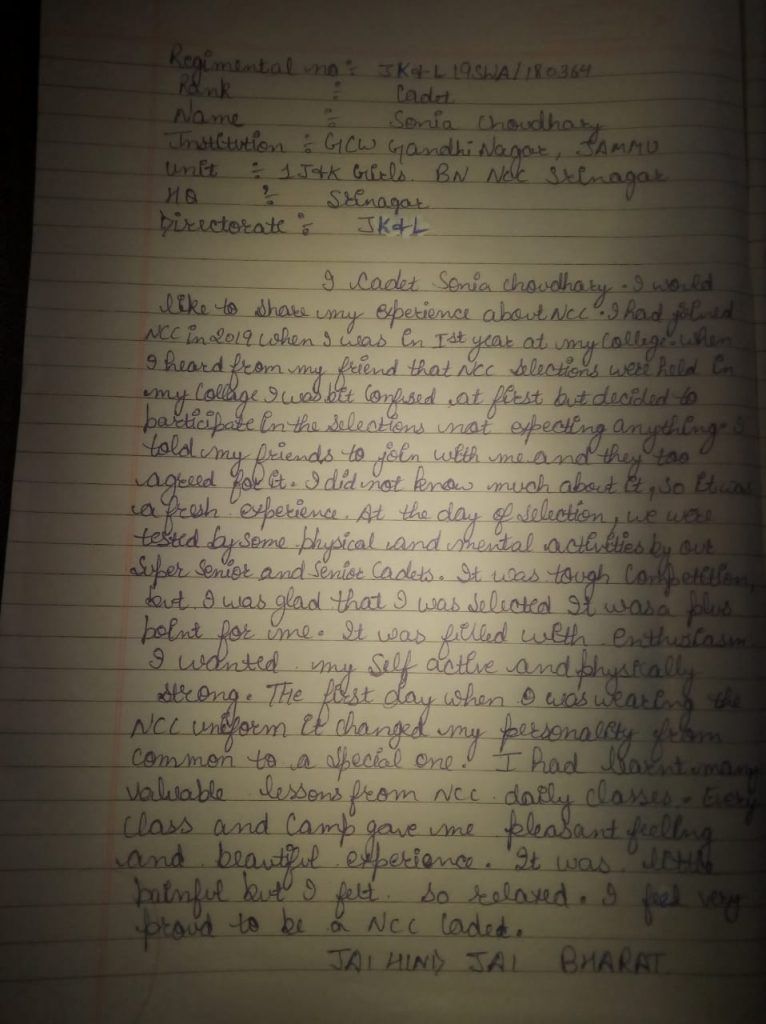 Regimental no : JK&L19SWA/180364
Rank : Cadet
Name : Sonia Choudhary
Institution : GCW Gandhi Nagar, JAMMU
Unit : 1 J&K Girls. BN NCC Srinagar
HQ : Srinagar
Directorate : JK&L
I Cadet Sonia Choudhary. I would
like to share my experience about NCC. I had joined
NCC in 2019 when I was in Ist year at my College. when
I heard from my friend that NCC selections were held in
my College I was bit confused, at first but decided to
participate in the selections not expecting anything. I
told my friends to join with me and they too
agreed for it. I did not know much about it, so it was
a fresh experience. At the day of selection, we were
tested by some physical and mental activities by our
Super Senior and Senior Cadets. It was tough Competition,
but I was glad that I was selected It was a plus
point for me. It was filled with enthusiasm
I wanted my self active and physically
strong. THe first day when I was wearing the
NCC uniform it changed my personality from
common to a special one. I had learnt many
valuable lessons from NCC daily classes. Every
class and Camp gave me pleasant feeling
and beautiful experience. It was little
painful but I felt so relaxed. I feel very
proud to be a NCC Cadet.
JAI HIND JAI BHARAT